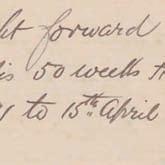 ht forward
is 50 weeks
to 15th April